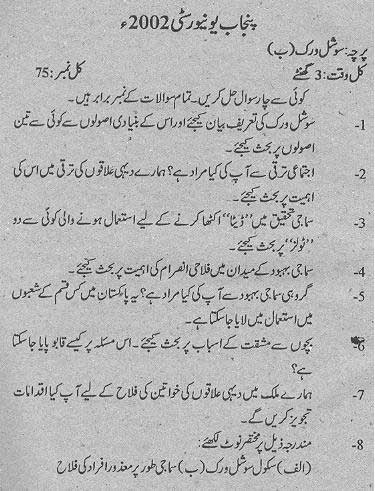 پنجاب یونیورسٹی 2002ء
پرچہ: سوشل ورک (ب)
کل وقت: 3 گھنٹے کل نمبر: 75
کوئی سے چار سوال حل کریں۔ تمام سوالات کے نمبر برابر ہیں۔
1- سوشل ورک کی تعریف بیان کیجئے اور اس کے بنیادی اصولوں سے کوئی سے تین
اصولوں پر بحث کیجئے۔
2- اجتماعی ترقی سے آپ کی کیا مراد ہے؟ ہمارے دیہی علاقوں کی ترقی میں اس کی
اہمیت پر بحث کیجئے۔
3- سماجی تحقیق میں ''ڈیٹا'' اکٹھا کرنے کے لیے استعمال ہونے والی کوئی سے دو
''ٹولز'' پر بحث کیجئے۔
4- سماجی بہبود کے میدان میں فلاحی انصرام کی اہمیت پر بحث کیجئے۔
5- گروہی سماجی بہبود سے آپ کی کیا مراد ہے؟ یہ پاکستان میں کس قسم کے شعبوں
میں استعمال میں لایا جا سکتا ہے۔
6- بچوں سے مشقت کے اسباب پر بحث کیجئے۔ اس مسئلہ پر کیسے قابو پایا جا سکتا
ہے؟
7- ہمارے ملک میں دیہی علاقوں کی خواتین کی فلاح کے لیے آپ کیا اقدامات
تجویز کریں گے۔
8- مندرجہ ذیل پر مختصر نوٹ لکھئے:
(الف) سکول سوشل ورک (ب) سماجی طور پر معذور افراد کی فلاح